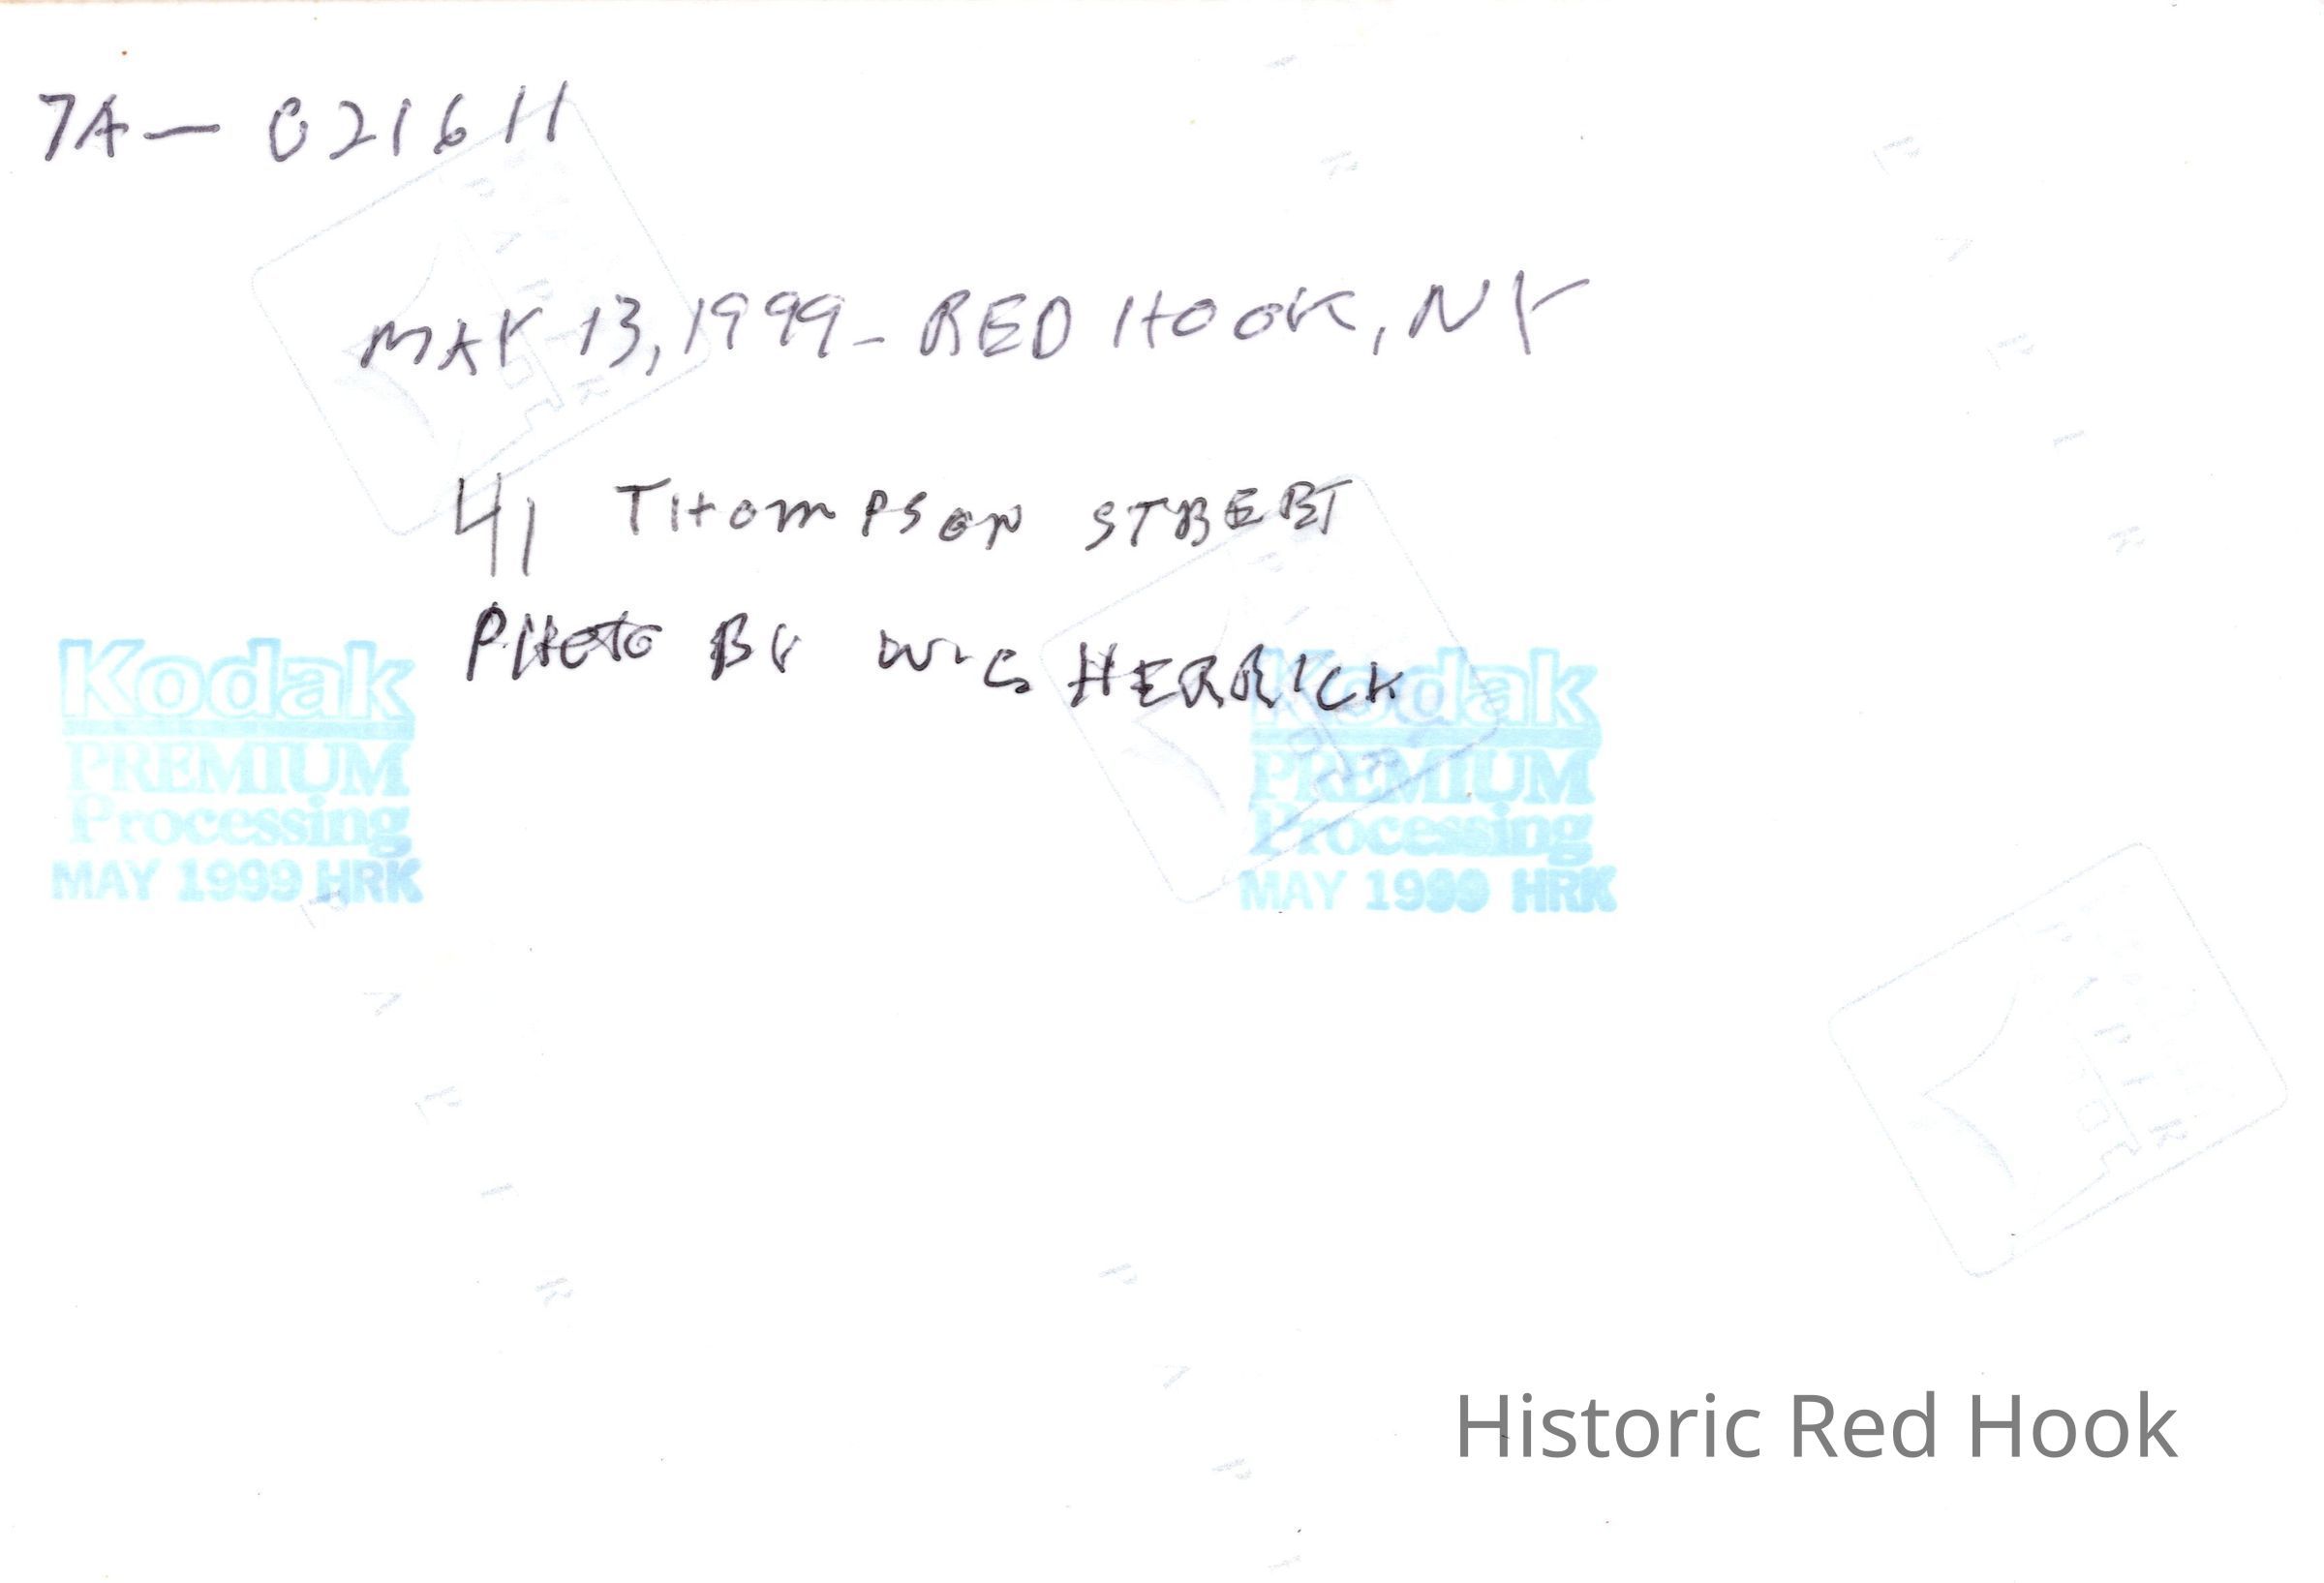 7A — 021611
MAY 13, 1999 - RED HOOK, NY
41 THOMPSON STREET
PHOTO BY WG HERRICK
Kodak
PREMIUM
Processing
MAY 1999 HRK
Kodak
PREMIUM
Processing
MAY 1999 HRK
Historic Red Hook